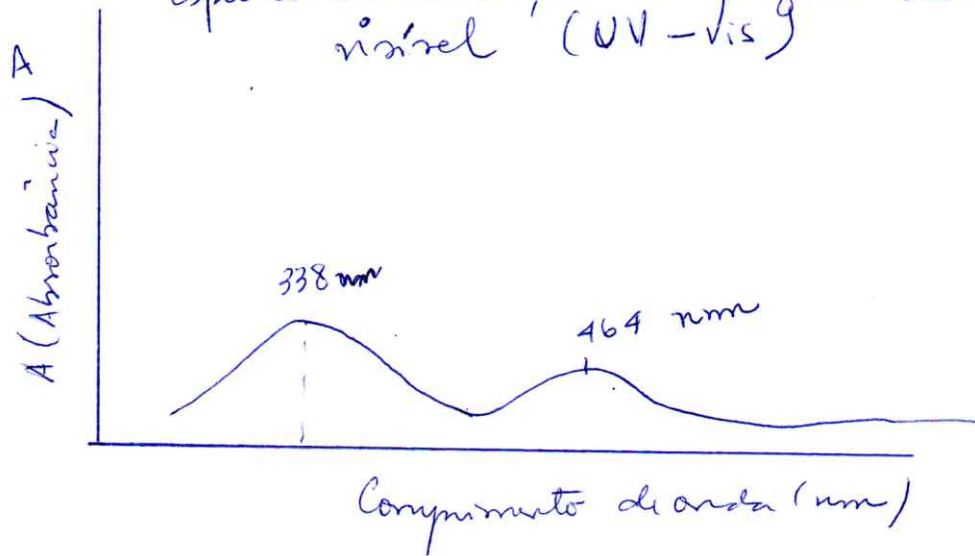 visível (UV-Vis)
A (Absorbância) A
338 nm
464 nm
Comprimento de onda (nm)